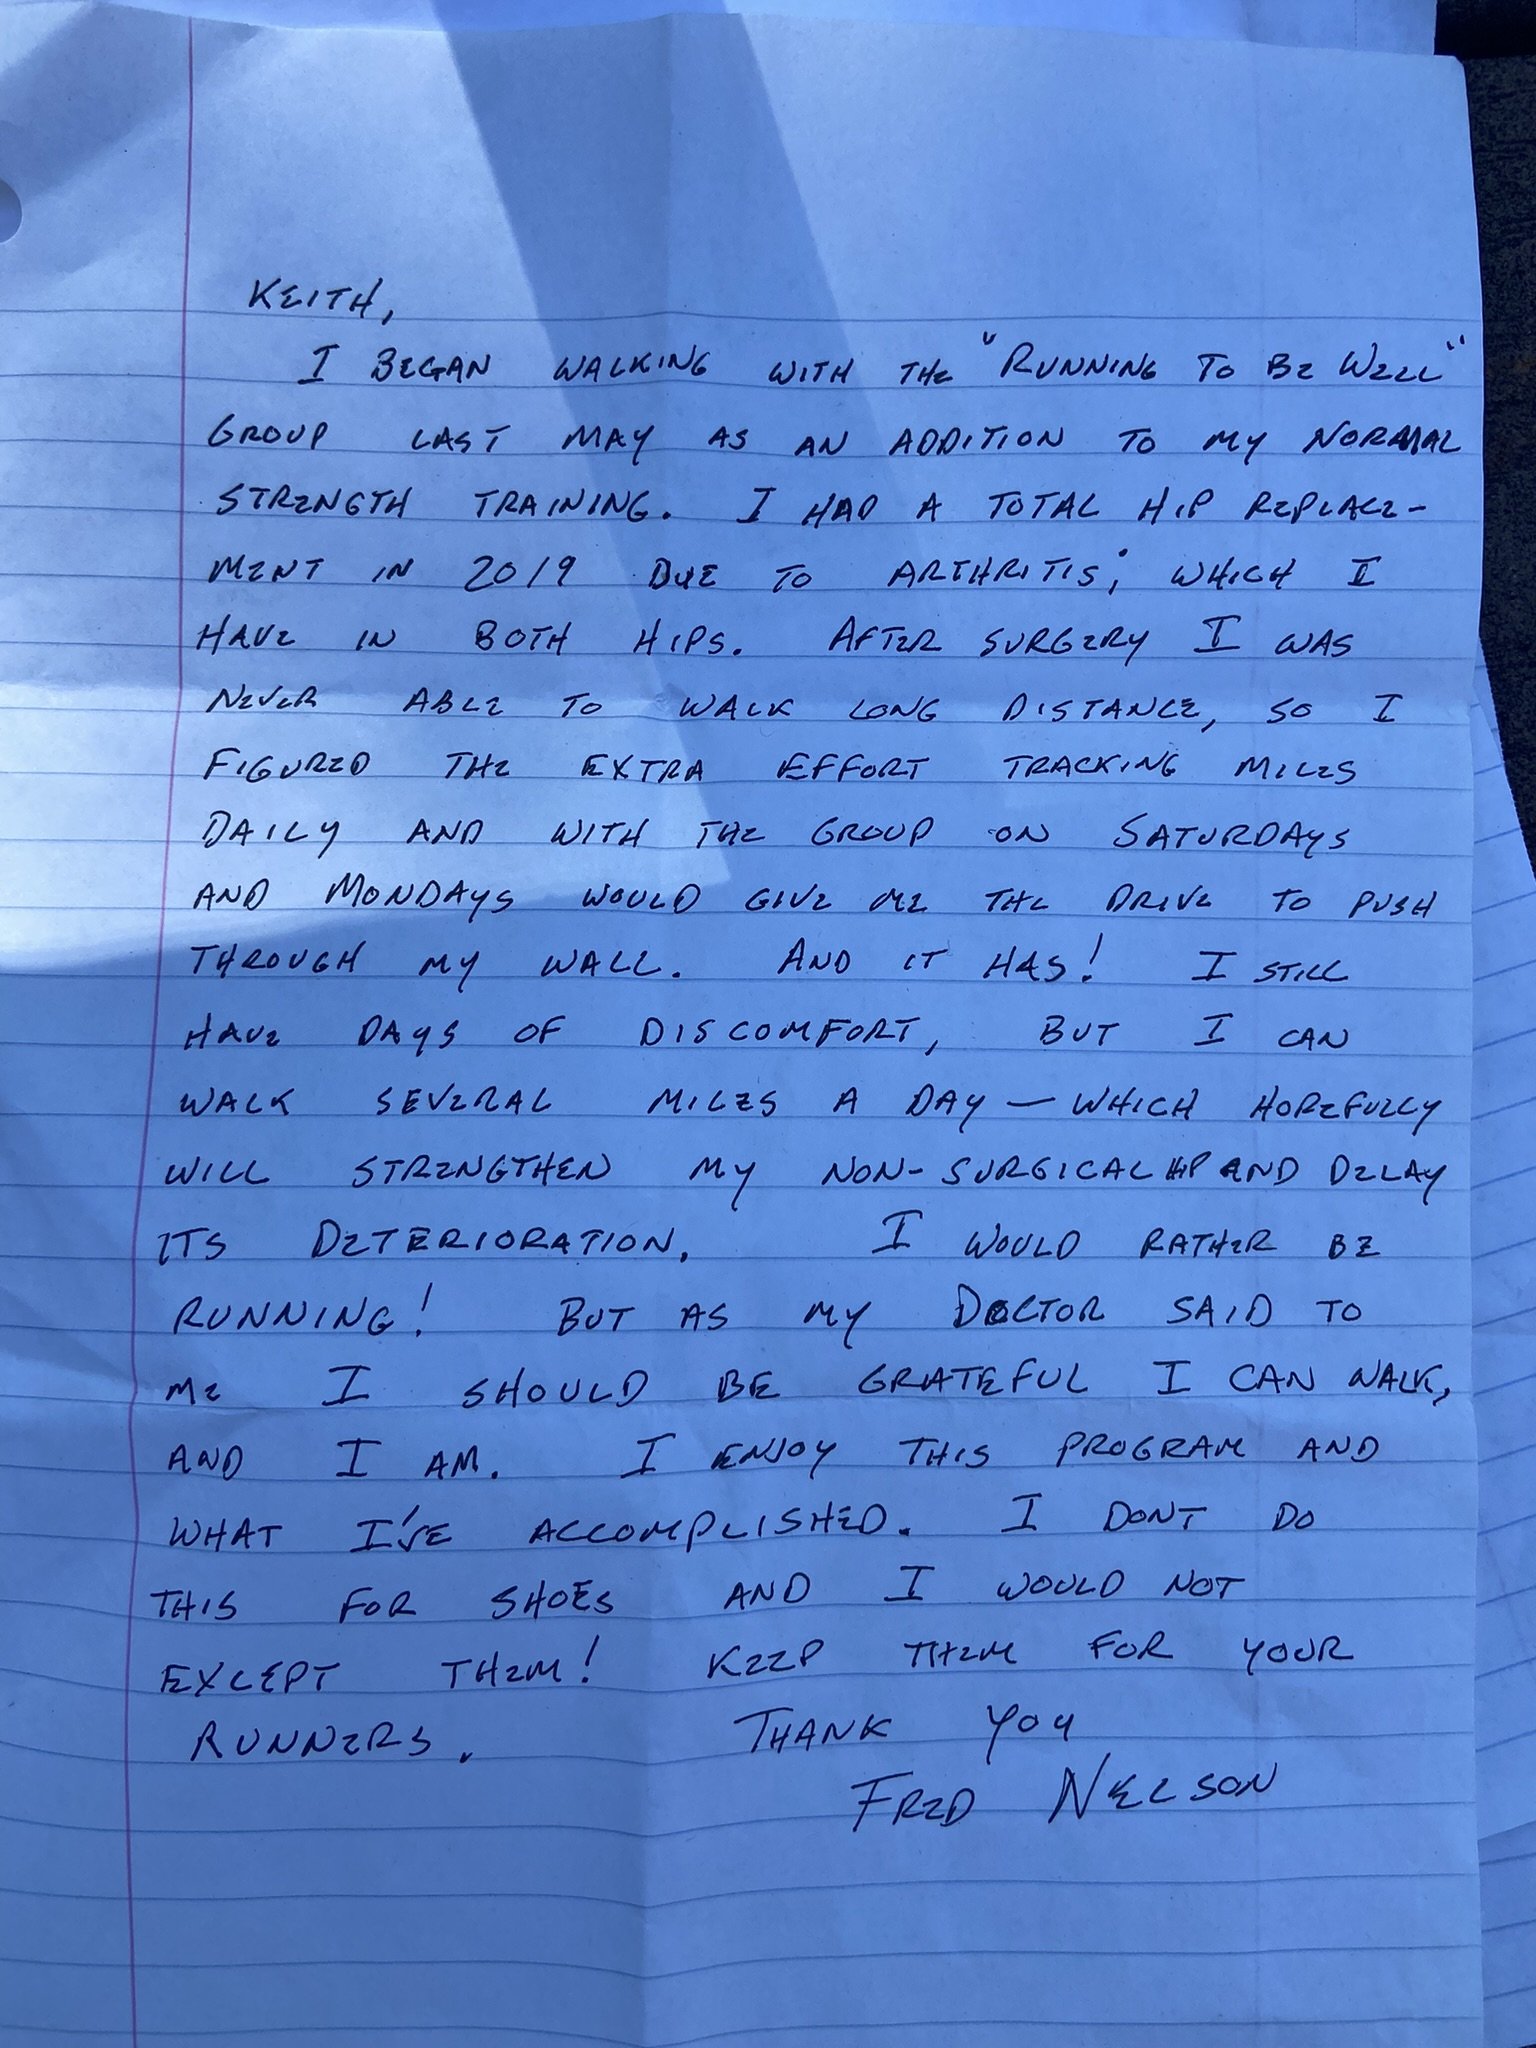 KEITH,
I BEGAN WALKING WITH THE "RUNNING TO BE WELL"
GROUP LAST MAY AS AN ADDITION TO MY NORMAL
STRENGTH TRAINING. I HAD A TOTAL HIP REPLACE-
MENT IN 2019 DUE TO ARTHRITIS; WHICH I
HAVE IN BOTH HIPS. AFTER SURGERY I WAS
NEVER ABLE TO WALK LONG DISTANCE, SO I
FIGURED THE EXTRA EFFORT TRACKING MILES
DAILY AND WITH THE GROUP ON SATURDAYS
AND MONDAYS WOULD GIVE ME THE DRIVE TO PUSH
THROUGH MY WALL. AND IT HAS! I STILL
HAVE DAYS OF DISCOMFORT, BUT I CAN
WALK SEVERAL MILES A DAY — WHICH HOPEFULLY
WILL STRENGTHEN MY NON-SURGICAL HIP AND DELAY
ITS DETERIORATION. I WOULD RATHER BE
RUNNING! BUT AS MY DOCTOR SAID TO
ME I SHOULD BE GRATEFUL I CAN WALK,
AND I AM. I ENJOY THIS PROGRAM AND
WHAT I'VE ACCOMPLISHED. I DONT DO
THIS FOR SHOES AND I WOULD NOT
EXCEPT THEM! KEEP THEM FOR YOUR
RUNNERS. THANK YOU
FRED NELSON